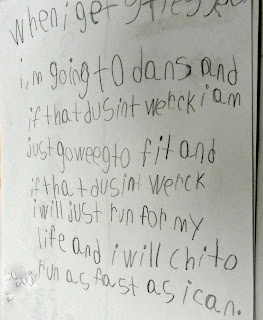 when i get
i,m going to dans and
if that dusint werck i am
just goweeg to fit and
if that dusint werck
i will just run for my
life and i will chito
run as fast as i can.